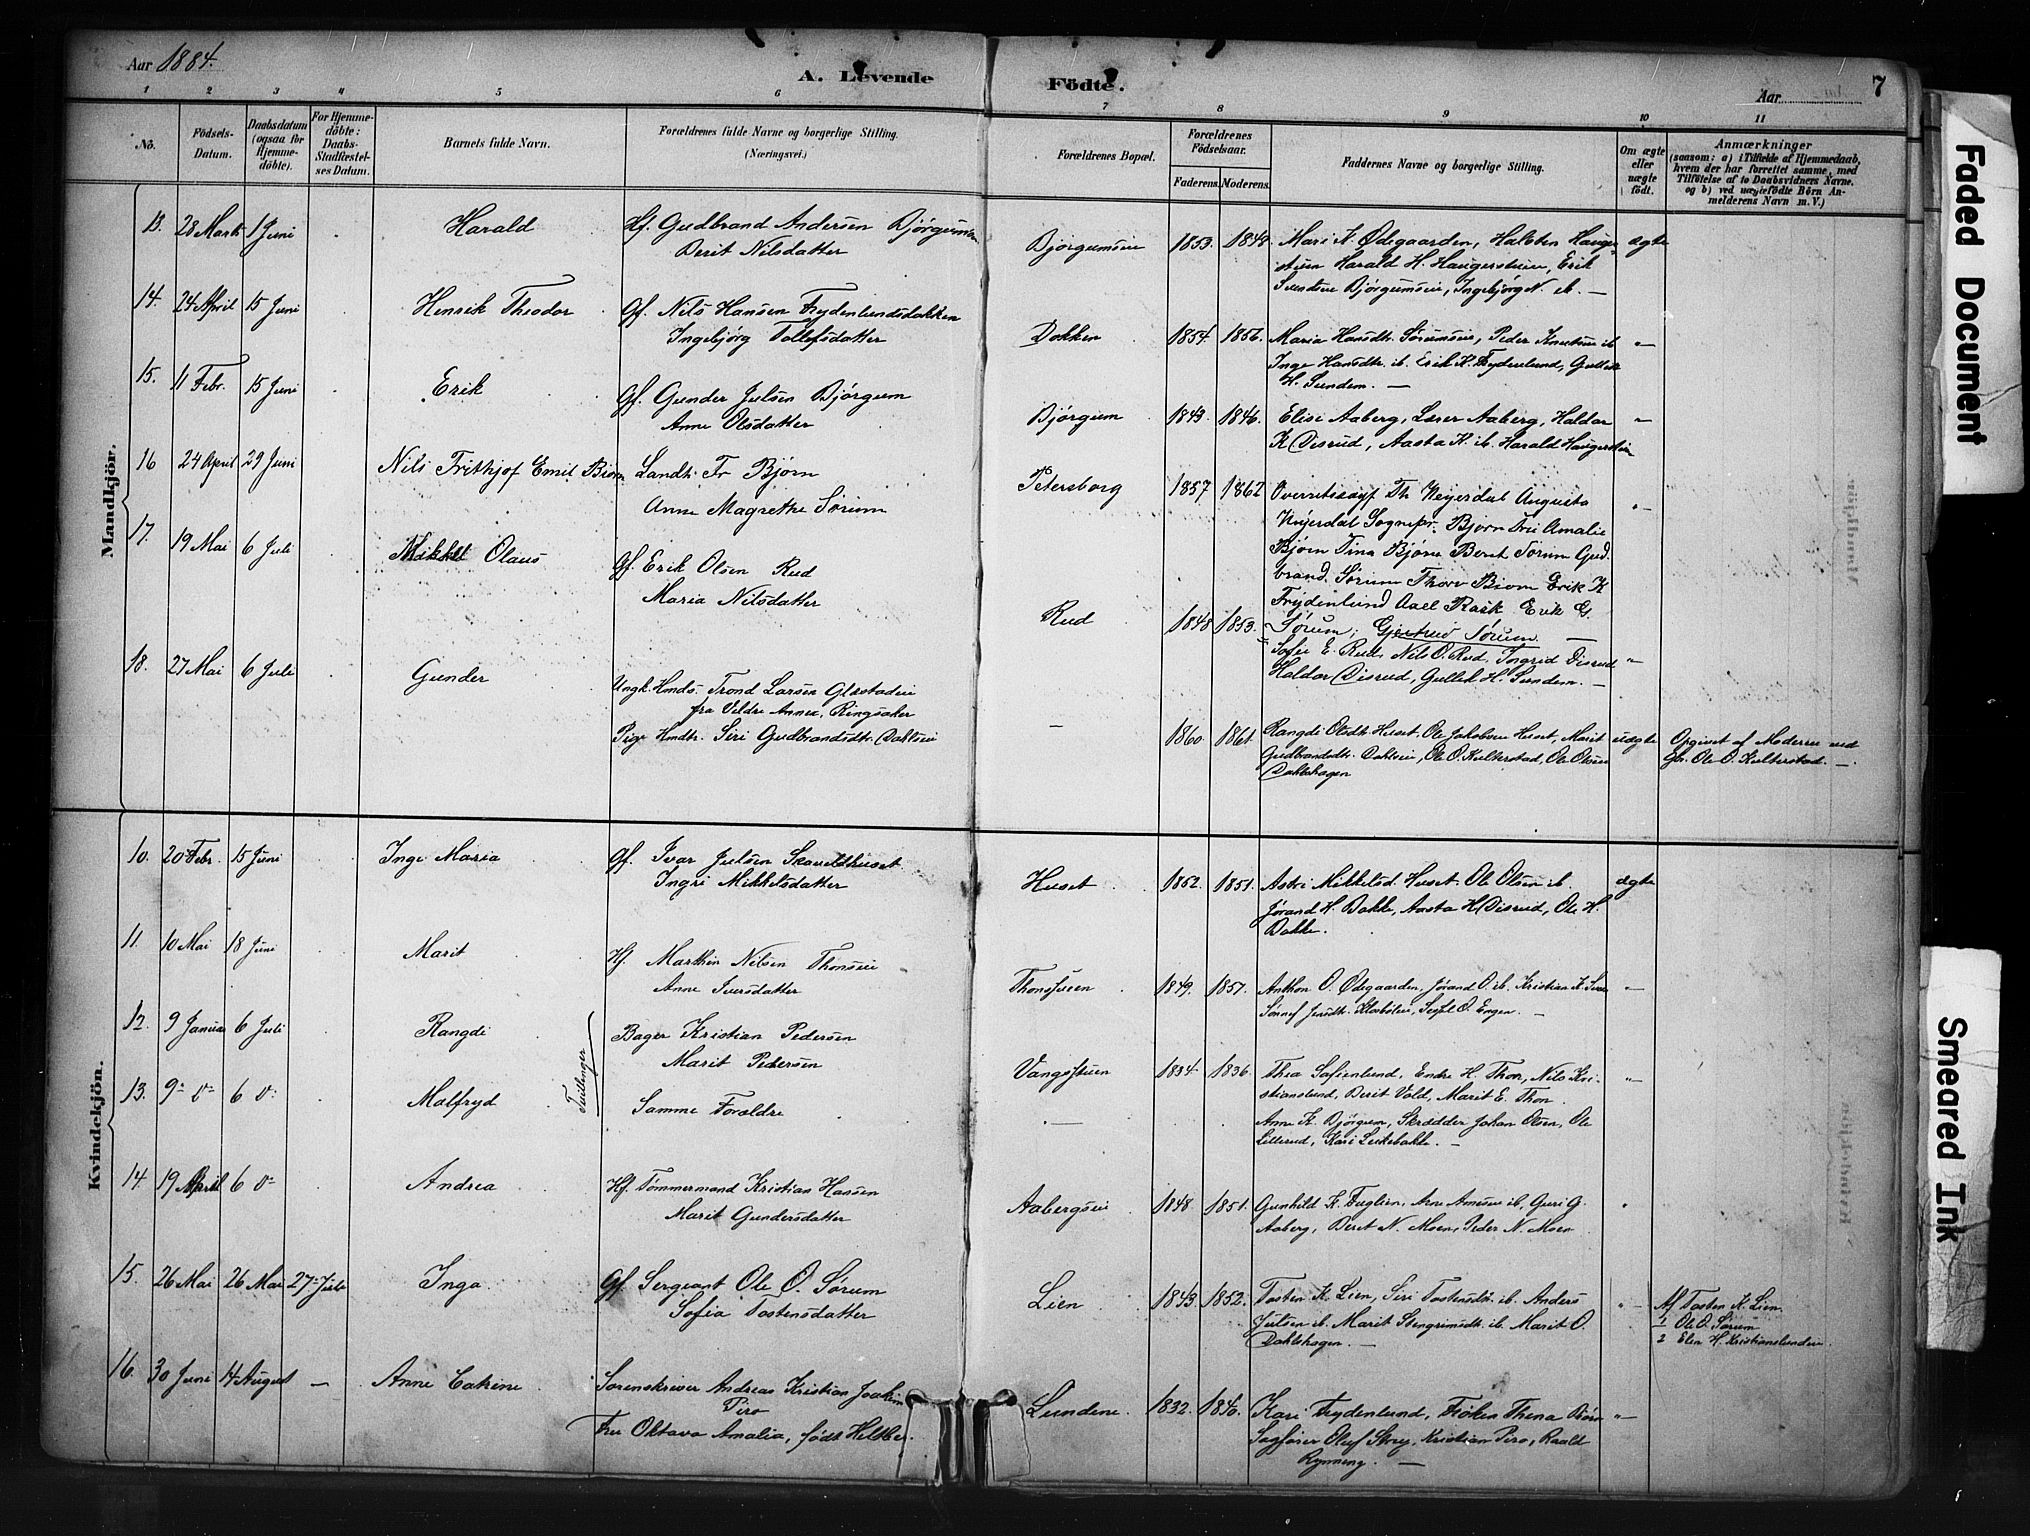 Aar 1884.
A. Levende Födte.
7
Aar
1 2 3 4 5 6 7 8 9 10 11
No.
Födsels-Datum.
Daabsdatum (ogsaa for Hjemmedöbte).
For Hjemmedöbte: Daabs-Stadfæstelses Datum.
Barnets fulde Navn.
Forældrenes fulde Navne og borgerlige Stilling. (Næringsvei.)
Forældrenes Bopæl.
Forældrenes Födselsaar.
Faderens. Moderens.
Faddernes Navne og borgerlige Stilling.
Om ægte eller uægte födt.
Anmærkninger
(saasom: a) i Tilfælde af Hjemmedaab, hvem der har forrettet samme, med Tilföielse af to Daabsvidners Navne, og b) ved uægtefödte Börn Anmelderens Navn m. V.)
Mandkjör.
13. 28 Marts 1 Juni Harald Gf. Gudbrand Andersen Bjørgumseie
Berit Nilsdatter
Bjørgumseie 1853. 1848 Mari K. Ødegaarden, Halsten Hauger-
stuen Harald H. Haugerstuen, Erik
Svendsen Bjørgumseie, Ingebjørg N. ib. —
ægte
14. 24 April 15 Juni Henrik Theodor Gf. Nils Hansen Frydenlundsdokken
Ingebjørg Tollefsdatter
Dokken 1854 1856. Maria Hansdtr. Sørumseie, Peder Knutsen ib
Inge Hansdtr. ib. Erik K. Frydenlund, Gullik
H. Sundem. —
"
15. 11 Febr. 15 Juni Erik Gf. Gunder Julsen Bjørgum
Anne Olsdatter
Bjørgum 1843. 1846. Elise Aaberg, Lærer Aaberg, Haldor
K Disrud, Aasta K. ib. Harald Haugerstuen
"
16 24 April 29 Juni Nils Frithjof Emil Bjørn Landh. Fr Bjørn
Anne Magrethe Sørum
Petersborg 1857 1862 Overretssagf Th Heyerdal Augusta
Heyerdal Sognepr. Bjørn Fru Amalie
Bjørn Tina Bjørn Berit Sørum Gud-
brand Sørum Thora Bjørn Erik K
Frydenlund Axel Rask Erik G.
Sørum, Gjertrud Sørum. —
"
17. 19 Mai 6 Juli Mikkel Olaus Gf. Erik Olsen Rud
Maria Nilsdatter
Rud 1848 1853. Sofie E. Rud, Nils O. Rud, Ingrid Disrud
Haldor Disrud, Gullik H. Sundem. —
"
18. 27 Mai 6 Juli Gunder Ungk. Hmds. Trond Larsen
fra Veldre Annex, Ringsaker
Pige Hmdtr. Siri Gudbrandsdtr. Dahlseie
— 1860. 1861. Rangdi Olsdtr Huset, Ole Jakobsen Huset, Marit
Gudbrandsdtr. Dahlseie, Ole O. Kulterstad, Ole Olsen
Dahlshagen
uægte Opgivet af Moderen ved
Gbr. Ole O. Kulterstad. —
Kvindekjön.
10. 20 Febr. 15 Juni Inge Maria Gf. Ivar Julsen Skaveldhuset
Ingri Mikkelsdatter
Huset 1852. 1851. Astri Mikkelsd. Huset. Ole Olsen ib.
Jørand H. Bakke, Aasta H Disrud, Ole H.
Bakke.
ægte
11. 10 Mai 18 Juni Marit Hf. Marthin Nilsen Thonseie
Anne Iversdatter
Thonstuen 1849. 1857. Anthon O. Ødegaarden, Jørand O. ib. Kristian K.
Sønnef Jensdtr. , Sesfel O. Engen. —
"
12. 9 Januar 6 Juli Rangdi Bager Kristian Pedersen
Marit Pedersen
Tvillinger
Vangstuen 1834 1836. Thea Safienlund, Endre H. Thon, Nils Kri-
stianslund, Berit Vold, Marit E. Thon.
"
13. 9 do 6 do Malfryd Samme Forældre
— Anne K. Bjørgum, Skrædder Johan Olsen, Ole
Lillerud, Kari Leirebakke. —
14. 19 April 6 do Andrea Hf. Tømmermand Kristian Hansen
Marit Gundersdatter
Aabergseie 1848. 1851. Gunhild K. Fuglien, Arne Arnesen ib, Guri G.
Aaberg, Berit N. Moen, Peder N. Moen
"
15. 26 Mai 26 Mai 27 Juli Inga Gf. Sergeant Ole O. Sørum
Sofia Tostensdatter
Lien 1843. 1852. Tosten K. Lien, Siri Tostensdtr. ib. Anders
Julsen ib. Marit Stengrimsdtr. ib. Marit O.
Dahlshagen. —
" Af Tosten K. Lien
1 Ole O. Sørum
2 Elen H. Kristianslundeie
16. 30 Juni 14 August — Anne Catrine Sorenskriver Andreas Kristian Joakim
Piro
Fru Oktava Amalia, født Heltber.
Lundene. 1832. 1840. Kari Frydenlund, Frøken Thena Piro
Sagfører Oluf Skrey, Kristian Piro, Roald
Rynning. —
"
Faded Document
Smeared Ink